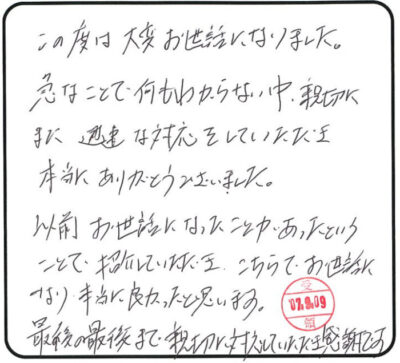 この度は大変お世話になりました。
急なことで何もわからない中、親切に
また 迅速な対応をしていただき
本当にありがとうございました。
以前お世話になったことがあったという
ことで紹介していただき、こちらでお世話に
なり本当に良かったと思います。
受
07.9.09
領
最後の最後まで親切に対応していただき感謝です